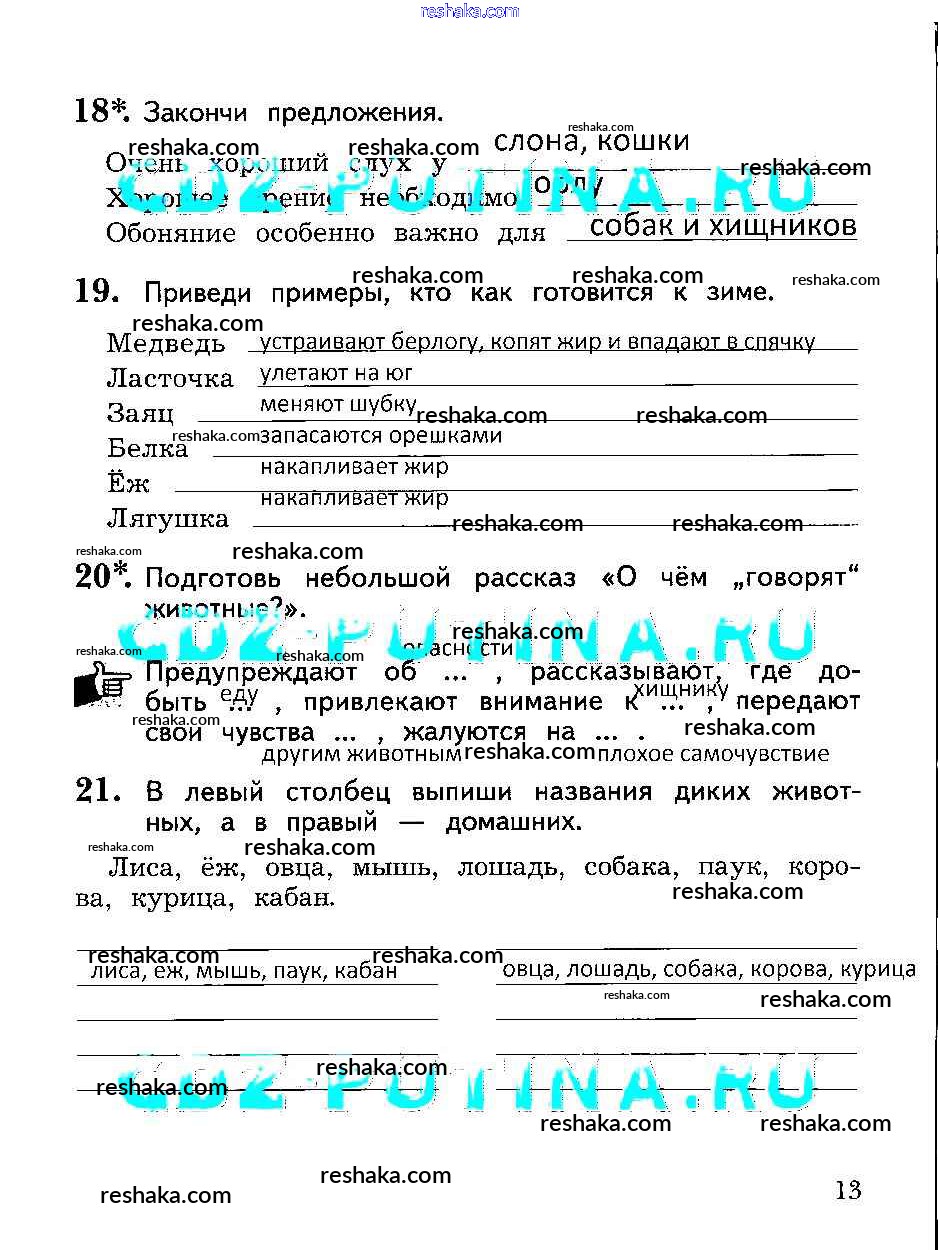 reshaka.com
18*. Закончи предложения.
reshaka.com
reshaka.com reshaka.com
слона, кошки
Очень хороший слух у
reshaka.com
GDZ-PUTINA.RU
орлу
Хорошее зрение необходимо
Обоняние особенно важно для собак и хищников
reshaka.com reshaka.com reshaka.com
19. Приведи примеры, кто как готовится к зиме.
reshaka.com
Медведь устраивают берлогу, копят жир и впадают в спячку
Ласточка улетают на юг
Заяц меняют шубку reshaka.com reshaka.com
Белка reshaka.com запасаются орешками
Ёж накапливает жир
накапливает жир
Лягушка reshaka.com reshaka.com
reshaka.com reshaka.com
20*. Подготовь небольшой рассказ «О чём „говорят“
животные?».
GDZ-PUTINA.RU
reshaka.com
reshaka.com reshaka.com опасности
Предупреждают об ... , рассказывают, где до-
еду хищнику
быть ... , привлекают внимание к ... , передают
reshaka.com
свои чувства ... , жалуются на ... . reshaka.com
другим животным reshaka.com плохое самочувствие
21. В левый столбец выпиши названия диких живот-
ных, а в правый — домашних.
reshaka.com reshaka.com
Лиса, ёж, овца, мышь, лошадь, собака, паук, коро-
ва, курица, кабан.
reshaka.com
reshaka.com reshaka.com
лиса, еж, мышь, паук, кабан овца, лошадь, собака, корова, курица
reshaka.com reshaka.com
reshaka.com
GDZ-PUTINA.RU
reshaka.com
reshaka.com reshaka.com
reshaka.com reshaka.com
13